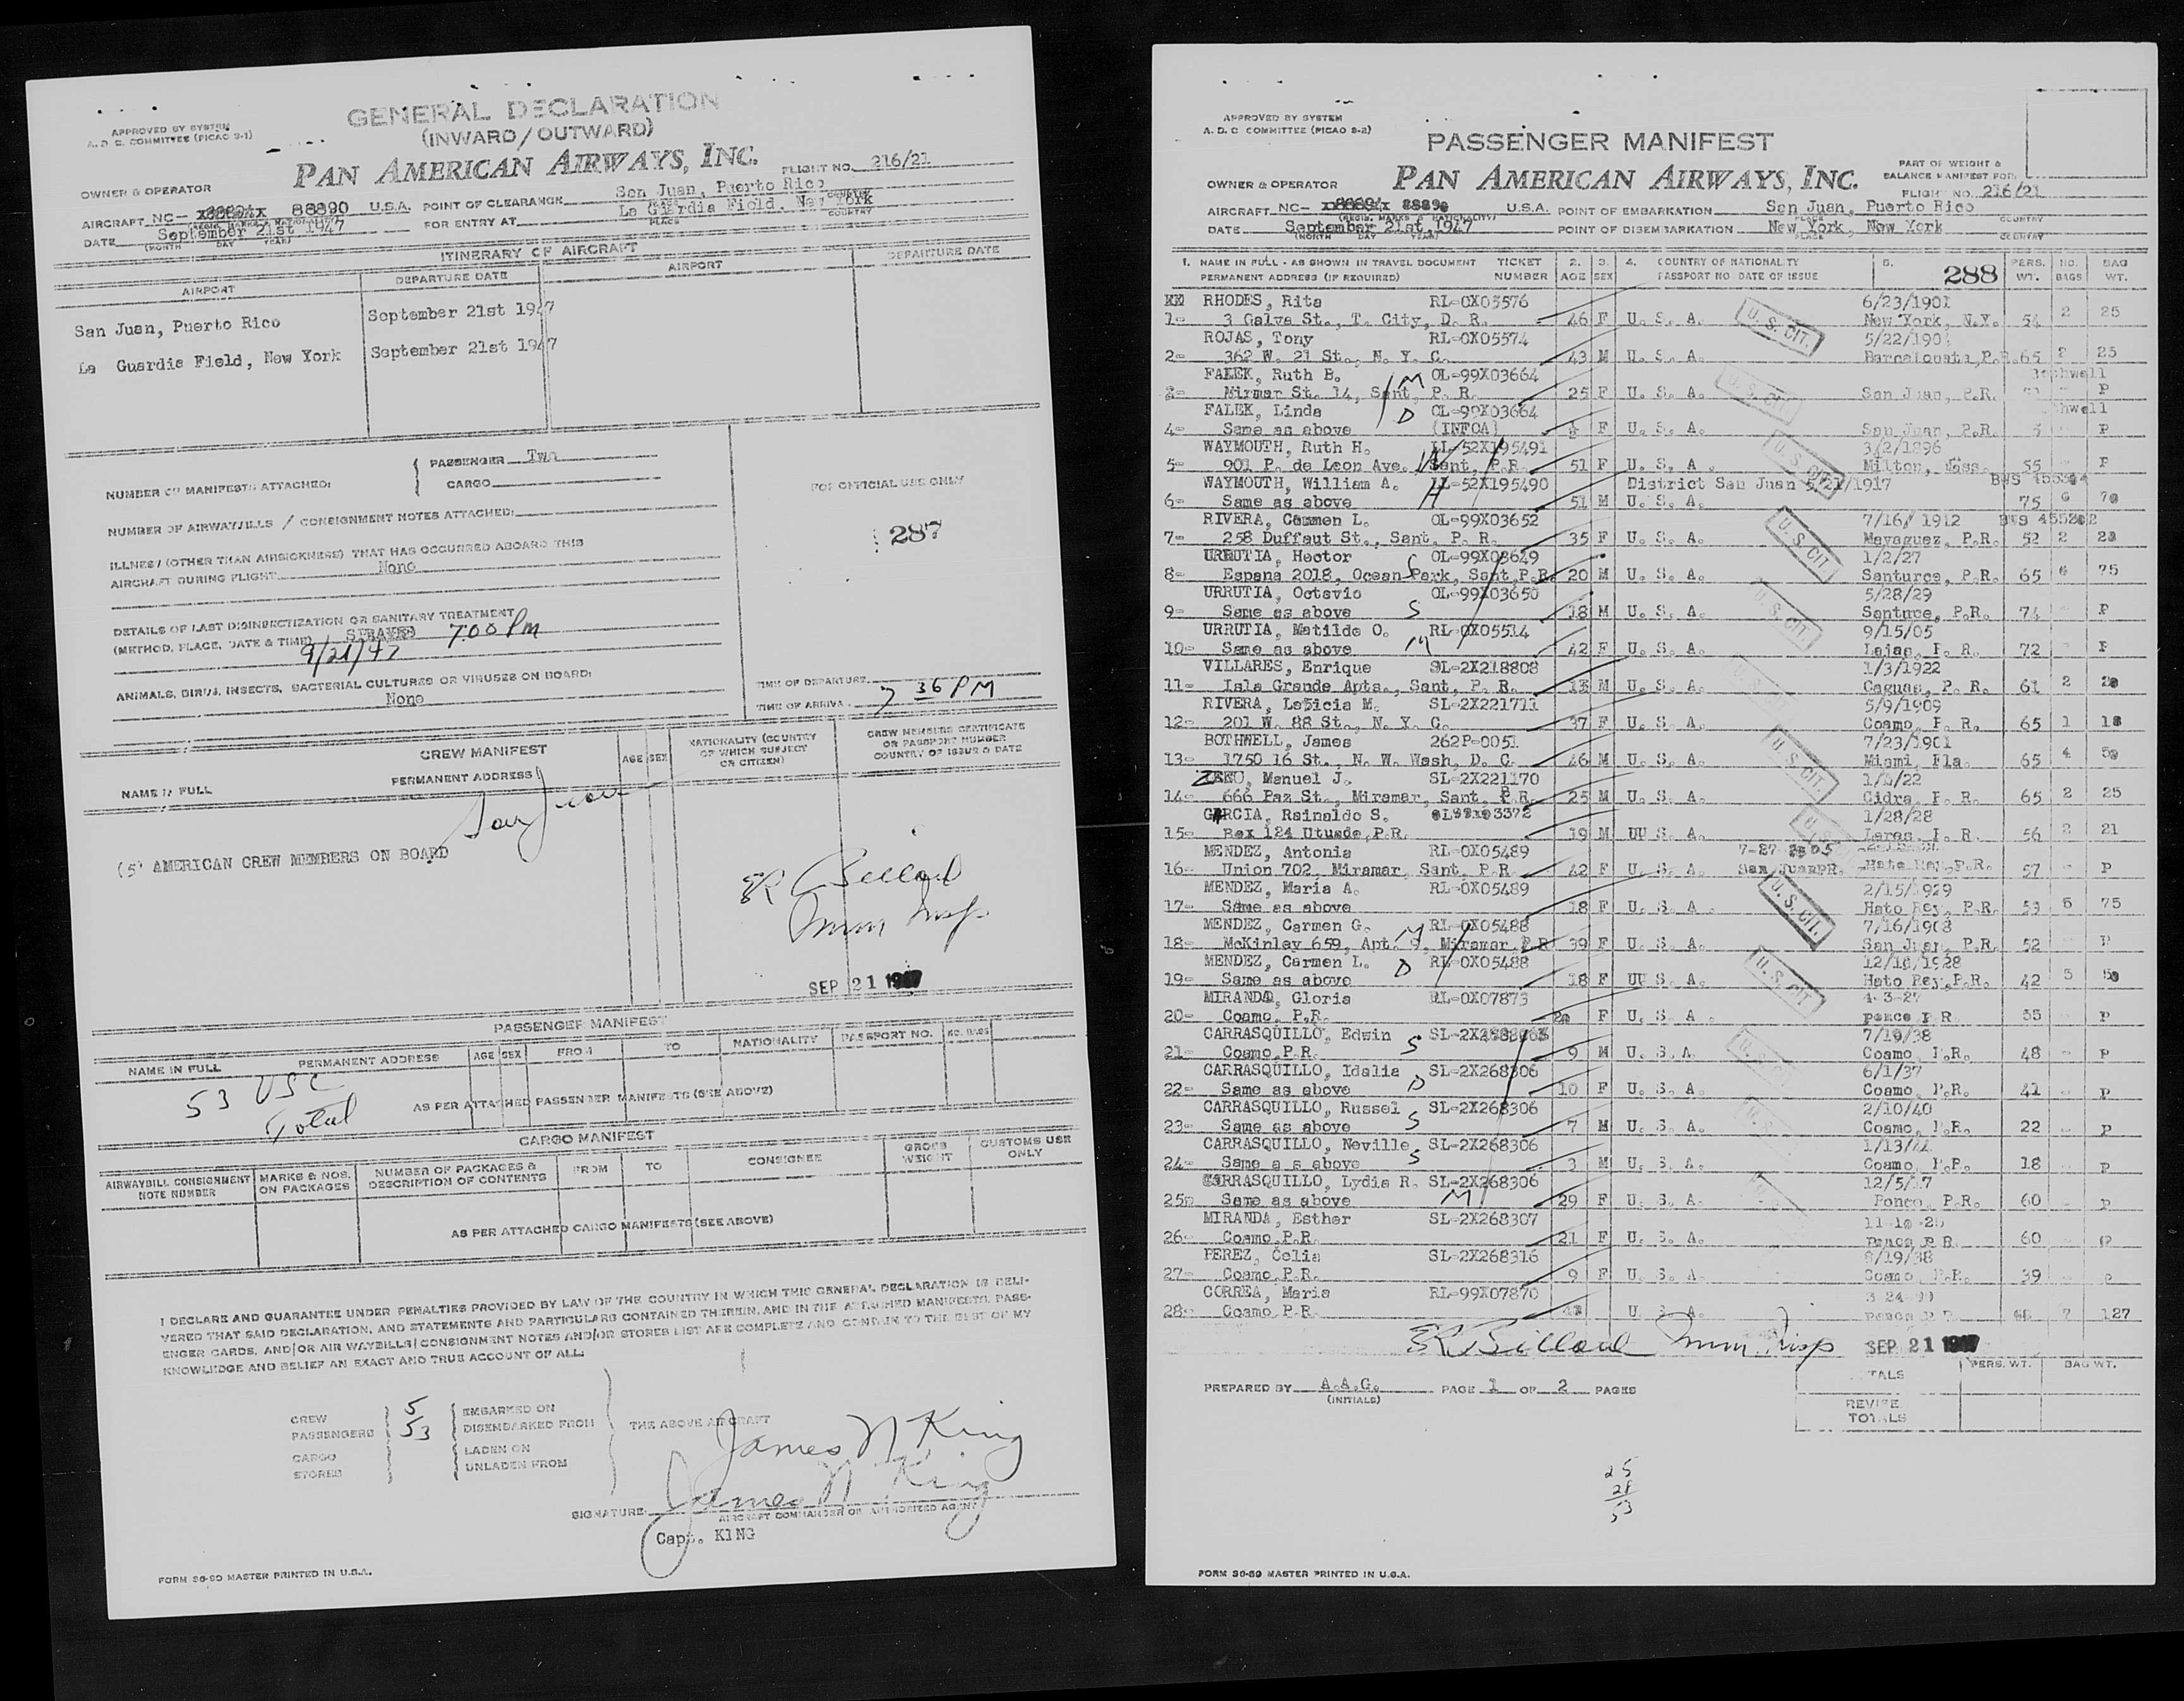 APPROVED BY SYSTEM
A. D. C. COMMITTEE (PICAO 2-1)
GENERAL DECLARATION
(INWARD/OUTWARD)
OWNER & OPERATOR
PAN AMERICAN AIRWAYS, INC.
FLIGHT NO. 216/21
AIRCRAFT NC- 88890 U.S.A. POINT OF CLEARANCE San Juan, Puerto Rico
DATE September 21st 1947 FOR ENTRY AT La Guardia Field, New York
(MONTH DAY YEAR) PLACE COUNTRY
ITINERARY OF AIRCRAFT
AIRPORT DEPARTURE DATE AIRPORT DEPARTURE DATE
San Juan, Puerto Rico September 21st 1947
La Guardia Field, New York September 21st 1947
NUMBER OF MANIFESTS ATTACHED: PASSENGER Two
CARGO
NUMBER OF AIRWAYBILLS / CONSIGNMENT NOTES ATTACHED:
FOR OFFICIAL USE ONLY
287
ILLNESS (OTHER THAN AIRSICKNESS) THAT HAS OCCURRED ABOARD THIS
AIRCRAFT DURING FLIGHT None
DETAILS OF LAST DISINSECTIZATION OR SANITARY TREATMENT
(METHOD, PLACE, DATE & TIME) SPRAYED 7:00 Pm
9/21/47
ANIMALS, BIRDS, INSECTS, BACTERIAL CULTURES OR VIRUSES ON BOARD:
None
TIME OF DEPARTURE
TIME OF ARRIVAL 7 36 PM
CREW MANIFEST
NAME IN FULL PERMANENT ADDRESS AGE SEX NATIONALITY (COUNTRY OF WHICH SUBJECT OR CITIZEN) CREW MEMBERS CERTIFICATE OR PASSPORT NUMBER COUNTRY OF ISSUE & DATE
San Juan
(5) AMERICAN CREW MEMBERS ON BOARD
SEP 21 1947
PASSENGER MANIFEST
NAME IN FULL PERMANENT ADDRESS AGE SEX FROM TO NATIONALITY PASSPORT NO. NO. BAGS
53 USC
Total
AS PER ATTACHED PASSENGER MANIFESTS (SEE ABOVE)
CARGO MANIFEST
AIRWAYBILL CONSIGNMENT NOTE NUMBER MARKS & NOS. ON PACKAGES NUMBER OF PACKAGES & DESCRIPTION OF CONTENTS FROM TO CONSIGNEE GROSS WEIGHT CUSTOMS USE ONLY
AS PER ATTACHED CARGO MANIFESTS (SEE ABOVE)
I DECLARE AND GUARANTEE UNDER PENALTIES PROVIDED BY LAW OF THE COUNTRY IN WHICH THIS GENERAL DECLARATION IS DELI-
VERED THAT SAID DECLARATION, AND STATEMENTS AND PARTICULARS CONTAINED THEREIN, AND IN THE ATTACHED MANIFESTS, PASS-
ENGER CARDS, AND/OR AIR WAYBILLS/CONSIGNMENT NOTES AND/OR STORES LIST ARE COMPLETE AND CONTAIN TO THE BEST OF MY
KNOWLEDGE AND BELIEF AN EXACT AND TRUE ACCOUNT OF ALL:
CREW 5 EMBARKED ON
PASSENGERS 53 DISEMBARKED FROM THE ABOVE AIRCRAFT
CARGO LADEN ON
STORES UNLADEN FROM
James N King
SIGNATURE James N King
AIRCRAFT COMMANDER OR AUTHORIZED AGENT
Capt. KING
FORM 36-90 MASTER PRINTED IN U.S.A.
APPROVED BY SYSTEM
A. D. C. COMMITTEE (PICAO 2-2)
PASSENGER MANIFEST
OWNER & OPERATOR
PAN AMERICAN AIRWAYS, INC.
PART OF WEIGHT &
BALANCE MANIFEST FOR:
FLIGHT NO. 216/21
AIRCRAFT NC- 88890 U.S.A. POINT OF EMBARKATION San Juan, Puerto Rico
DATE September 21st, 1947 POINT OF DISEMBARKATION New York, New York
(MONTH DAY YEAR) PLACE COUNTRY
1. NAME IN FULL - AS SHOWN IN TRAVEL DOCUMENT TICKET 2. 3. 4. COUNTRY OF NATIONALITY 5. PERS. NO. BAG
PERMANENT ADDRESS (IF REQUIRED) NUMBER AGE SEX PASSPORT NO DATE OF ISSUE 288 WT. BAGS WT.
RHODES, Rita RL-0X05576 6/23/1901
1- 3 Galva St., T. City, D. R. 46 F U. S. A. U. S. CIT. New York, N.Y. 54 2 25
ROJAS, Tony RL-0X05574
2- 362 W. 21 St., N. Y. C. 43 M U. S. A. 65 2 25
FALEK, Ruth B. M OL-99X03664
3- Mirmar St. 14, Sant, P. R. 25 F U. S. A. San Juan, P.R. P
FALEK, Linda D OL-99X03664
4- Same as above (INFOA) F U. S. A. San Juan, P.R. P
WAYMOUTH, Ruth H. LL-52X195491 3/2/1896
5- 901 P. de Leon Ave. Sant, P.R. W 51 F U. S. A. Milton, Mass. 55 P
WAYMOUTH, William A. LL-52X195490 District San Juan
6- Same as above H 51 M U. S. A. 75 6 70
RIVERA, Carmen L. OL-99X03652 7/16/1912
7- 258 Duffaut St., Sant, P. R. 35 F U. S. A. Mayaguez, P.R. 52 2
URRUTIA, Hector OL-99X03649 1/2/27
8- Espana 2018, Ocean Park, Sant, P.R. S 20 M U. S. A. Santurce, P.R. 65 6 75
URRUTIA, Octavio OL-99X03650 5/28/29
9- Same as above S 18 M U. S. A. Santrce, P.R. 74 P
URRUTIA, Matilde O. RL-0X05514 9/15/05
10- Same as above M 42 F U. S. A. Lajas, P. R. 72 P
VILLARES, Enrique SL-2X218808 1/3/1922
11- Isla Grande Apts., Sant, P. R. 13 M U. S. A. Caguas, P. R. 61 2
RIVERA, Leticia M. SL-2X221711 5/9/1909
12- 201 W. 88 St., N. Y. C. 37 F U. S. A. Coamo, P. R. 65 1
BOTHWELL, James 262P-0051 7/23/1901
13- 1750 16 St., N. W. Wash, D. C. 46 M U. S. A. Miami, Fla. 65 4
ZENO, Manuel J. SL-2X221170
14- 666 Paz St., Miramar, Sant, P.R. 25 M U. S. A. Cidra, P. R. 65 2 25
GARCIA, Reinaldo S. 1/28/28
15- Box 124 Utuado, P.R. 19 M UU S. A. Lares, P. R. 56 2 21
MENDEZ, Antonia RL-0X05489
16- Union 702, Miramar, Sant, P.R. 42 F U. S. A. Hato Rey, P.R. 57 P
MENDEZ, Maria A. RL-0X05489 2/15/1929
17- Same as above 18 F U. S. A. Hato Rey, P.R. 53 5 75
MENDEZ, Carmen G. RL-0X05488 7/16/1908
18- McKinley 659, Apt. 9, Miramar, P.R M 39 F U. S. A. San Juan, P.R. 52 P
MENDEZ, Carmen L. D RL-0X05488
19- Same as above 18 F UU S. A. Hato Rey, P.R. 42 5
MIRANDA, Gloria RL-0X07873 4-3-27
20- Coamo, P.R. F U. S. A. Ponce P R 55 P
CARRASQUILLO, Edwin 7/19/38
21- Coamo, P.R. S 9 M U. S. A. Coamo, P.R. 48 P
CARRASQUILLO, Idalia SL-2X268306 6/1/37
22- Same as above D 10 F U. S. A. Coamo, P.R. 41 P
CARRASQUILLO, Russel SL-2X268306 2/10/40
23- Same as above S 7 M U. S. A. Coamo, P.R. 22 P
CARRASQUILLO, Neville SL-2X268306 1/13/44
24- Same a s above S 3 M U. S. A. Coamo, P.R. 18 P
CARRASQUILLO, Lydia R. SL-2X268306 12/5/17
25- Same as above M 29 F U. S. A. Ponce, P.R. 60 P
MIRANDA, Esther SL-2X268307
26- Coamo, P.R. 21 F U. S. A. Ponce P R. 60 P
PEREZ, Celia SL-2X268316 8/19/38
27- Coamo, P.R. 9 F U. S. A. Coamo, P.R. 39 P
CORREA, Maria RL-99X07870 3-24-99
28- Coamo P.R. U. S. A. Ponce P R. 7 127
SEP 21 1947
PREPARED BY A.A.G. PAGE 1 OF 2 PAGES
(INITIALS)
PERS. WT. BAG WT.
TOTALS
REVISE
TOTALS
25
28
53
FORM 36-89 MASTER PRINTED IN U.S.A.